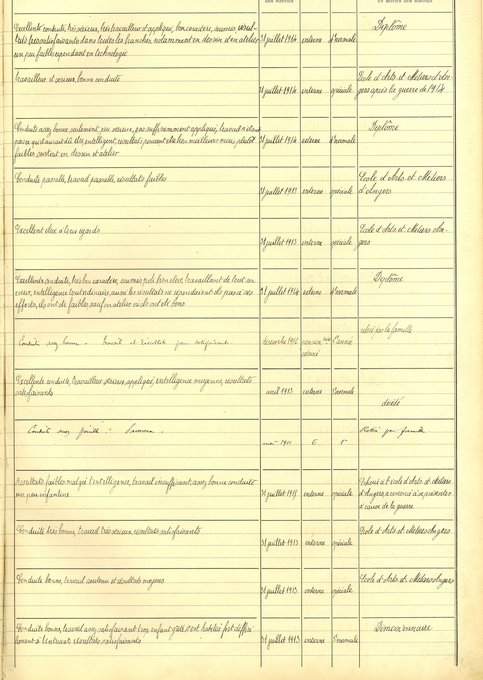 DES SORTIES
ET MOTIFS DES SORTIES
Excellente conduite, très sérieux, très travailleur et appliqué, bon caractère, résul-
tats très satisfaisants dans toutes les branches, notamment en dessin et en atelier
un peu faible cependant en technologie
31 juillet 1914 interne 4e normale Diplôme
Travailleur et sérieux, bonne conduite
31 juillet 1914 interne spéciale Ecole d'Arts et Métiers d'An-
gers après la guerre de 1914
Conduite assez bonne seulement, peu sérieux, pas suffisamment appliqué, travail
intelligent, résultats pouvant être bien meilleurs mais plutôt
faibles surtout en dessin et atelier
31 juillet 1914 4e normale Diplôme
Conduite passable, travail passable, résultats faibles
31 juillet 1913 interne spéciale Ecole d'Arts et Métiers
d'Angers
Excellent élève à tous égards
31 juillet 1913 interne spéciale Ecole d'Arts et Métiers An-
gers
Excellente conduite, très bon caractère, bien élevé, travaillant de tout son
cœur, intelligence
efforts, ils ont été faibles, sauf en atelier où ils ont été bons
31 juillet 1914 4e normale Diplôme
Conduite assez bonne - Travail et résultats peu satisfaisants
décembre 1914 1e année retiré par la famille
Excellente conduite, travailleur sérieux, appliqué, intelligence moyenne, résultats
satisfaisants
avril 1913 externe normale décédé
Conduite assez
mai 1911 Retiré par famille
Résultats faibles malgré l'intelligence, travail insuffisant, assez bonne conduite
un peu enfantine
31 juillet 1915 interne spéciale école d'Arts et Métiers
d'Angers, a renoncé à se présenter
à cause de la guerre
Conduite très bonne, travail très sérieux, résultats satisfaisants
31 juillet 1913 interne spéciale Ecole d'Arts et Métiers Angers
Conduite bonne, travail soutenu et résultats moyens
31 juillet 1913 interne spéciale Ecole d'Arts et Métiers Angers
Conduite bonne, travail assez satisfaisant, enfant gâté s'est habitué fort diffici-
lement à l'internat, résultats satisfaisants
31 juillet 1913 interne normale Démissionnaire